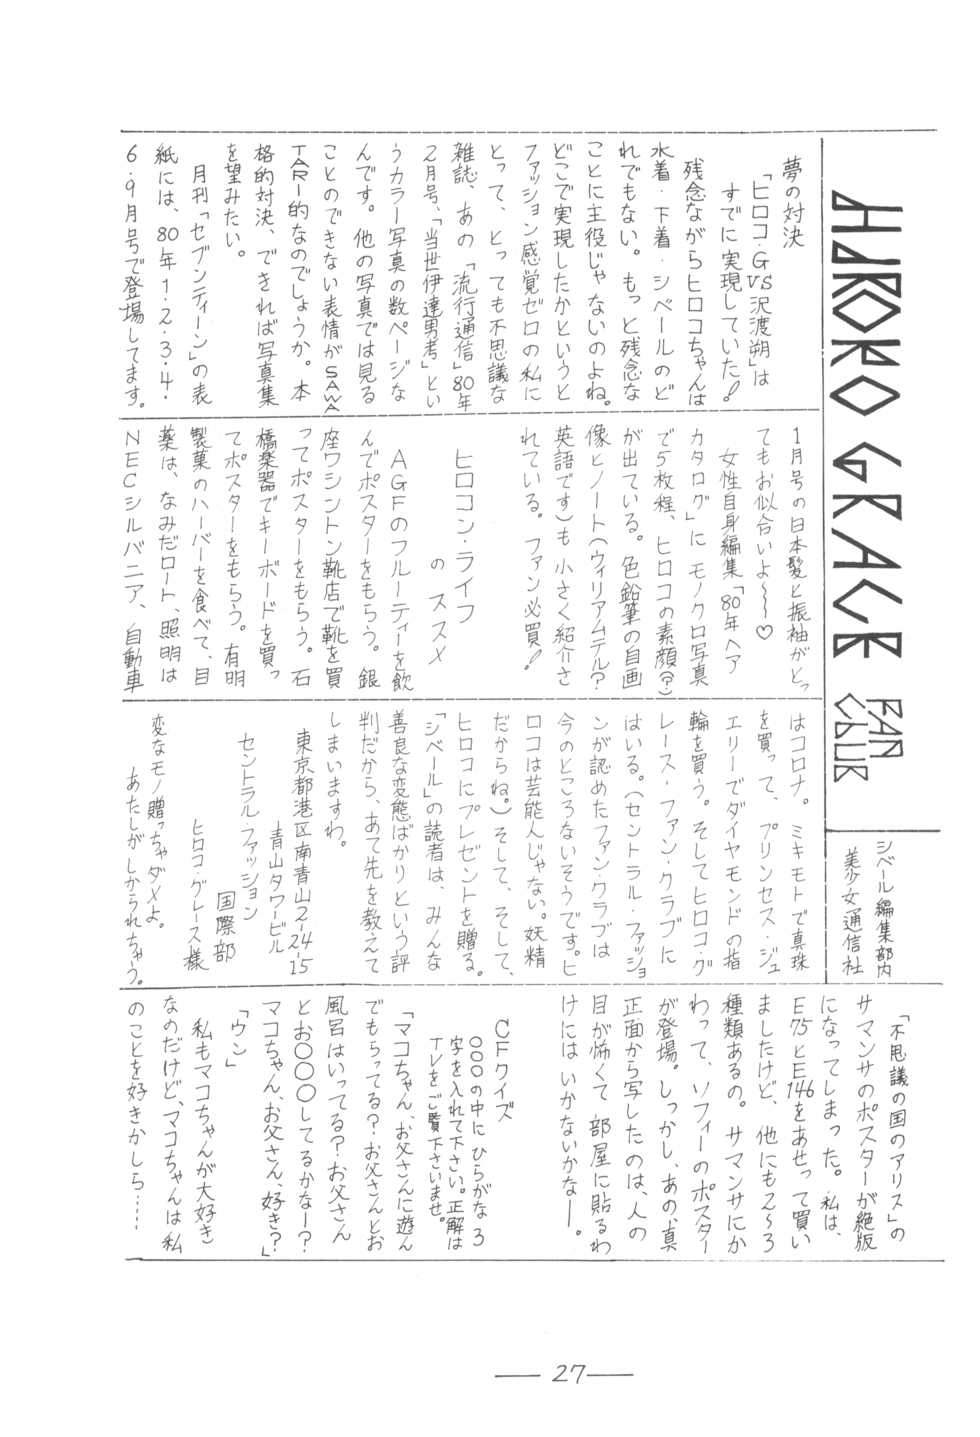 HIROKO GRACE
FAN CLUB
シベール編集部内
美少女通信社
夢の対決
「ヒロコ・GVS沢渡朔」は
すでに実現していた!
残念ながらヒロコちゃんは
水着・下着・シベールのど
れでもない。もっと残念な
ことに主役じゃないのよね。
どこで実現したかというと
ファッション感覚ゼロの私に
とって、とっても不思議な
雑誌、あの「流行通信」80年
2月号、「当世伊達男考」とい
うカラー写真の数ページな
んです。他の写真では見る
ことのできない表情がSAWA
TARI的なのでしょうか。本
格的対決、できれば写真集
を望みたい。
月刊「セブンティーン」の表
紙には、80年1・2・3・4・
6・9月号で登場してます。
1月号の日本髪と振袖がとっ
てもお似合いよ〜〜♡
女性自身編集「80年ヘア
カタログ」にモノクロ写真
で5枚程、ヒロコの素顔(?)
が出ている。色鉛筆の自画
像とノート(ウィリアムテル?
英語です)も小さく紹介さ
れている。ファン必買!
ヒロコン・ライフ
のススメ
AGFのフルーティーを飲
んでポスターをもらう。銀
座ワシントン靴店で靴を買
ってポスターをもらう。石
橋楽器でキーボードを買っ
てポスターをもらう。有明
製菓のハーバーを食べて、目
薬は、なみだロート、照明は
NECシルバニア、自動車
はコロナ。ミキモトで真珠
を買って、プリンセス・ジュ
エリーでダイヤモンドの指
輪を買う。そしてヒロコ・グ
レース・ファン・クラブに
はいる。(セントラル・ファッショ
ンが認めたファン・クラブは
今のところないそうです。ヒ
ロコは芸能人じゃない。妖精
だからね。)そして、そして、
ヒロコにプレゼントを贈る。
「シベール」の読者は、みんな
善良な変態ばかりという評
判だから、あて先を教えて
しまいますわ。
東京都港区南青山2-24-15
青山タワービル
セントラル・ファッション
国際部
ヒロコ・グレース様
変なモノ贈っちゃダメよ。
あたしが しかられちゃう。
「不思議の国のアリス」の
サマンサのポスターが絶版
になってしまった。私は、
E75とE146をあせって買い
ましたけど、他にも2〜3
種類あるの。サマンサにか
わって、ソフィーのポスター
が登場。しっかし、あの、真
正面から写したのは、人の
目が怖くて 部屋に貼るわ
けには いかないかなー。
CFクイズ
○○○の中に ひらがな 3
字を入れて下さい。正解は
TVをご覧下さいませ。
「マコちゃん、お父さんに遊ん
でもらってる?お父さんとお
風呂はいってる?お父さん
とお○○○してるかなー?
マコちゃん、お父さん、好き?」
「ウン」
私もマコちゃんが大好き
なのだけど、マコちゃんは私
のことを好きかしら……
— 27 —